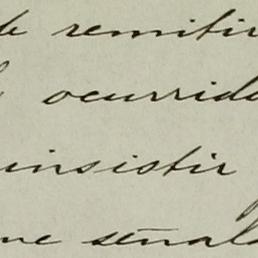 de remitir
ocurrido
insistir
me señal